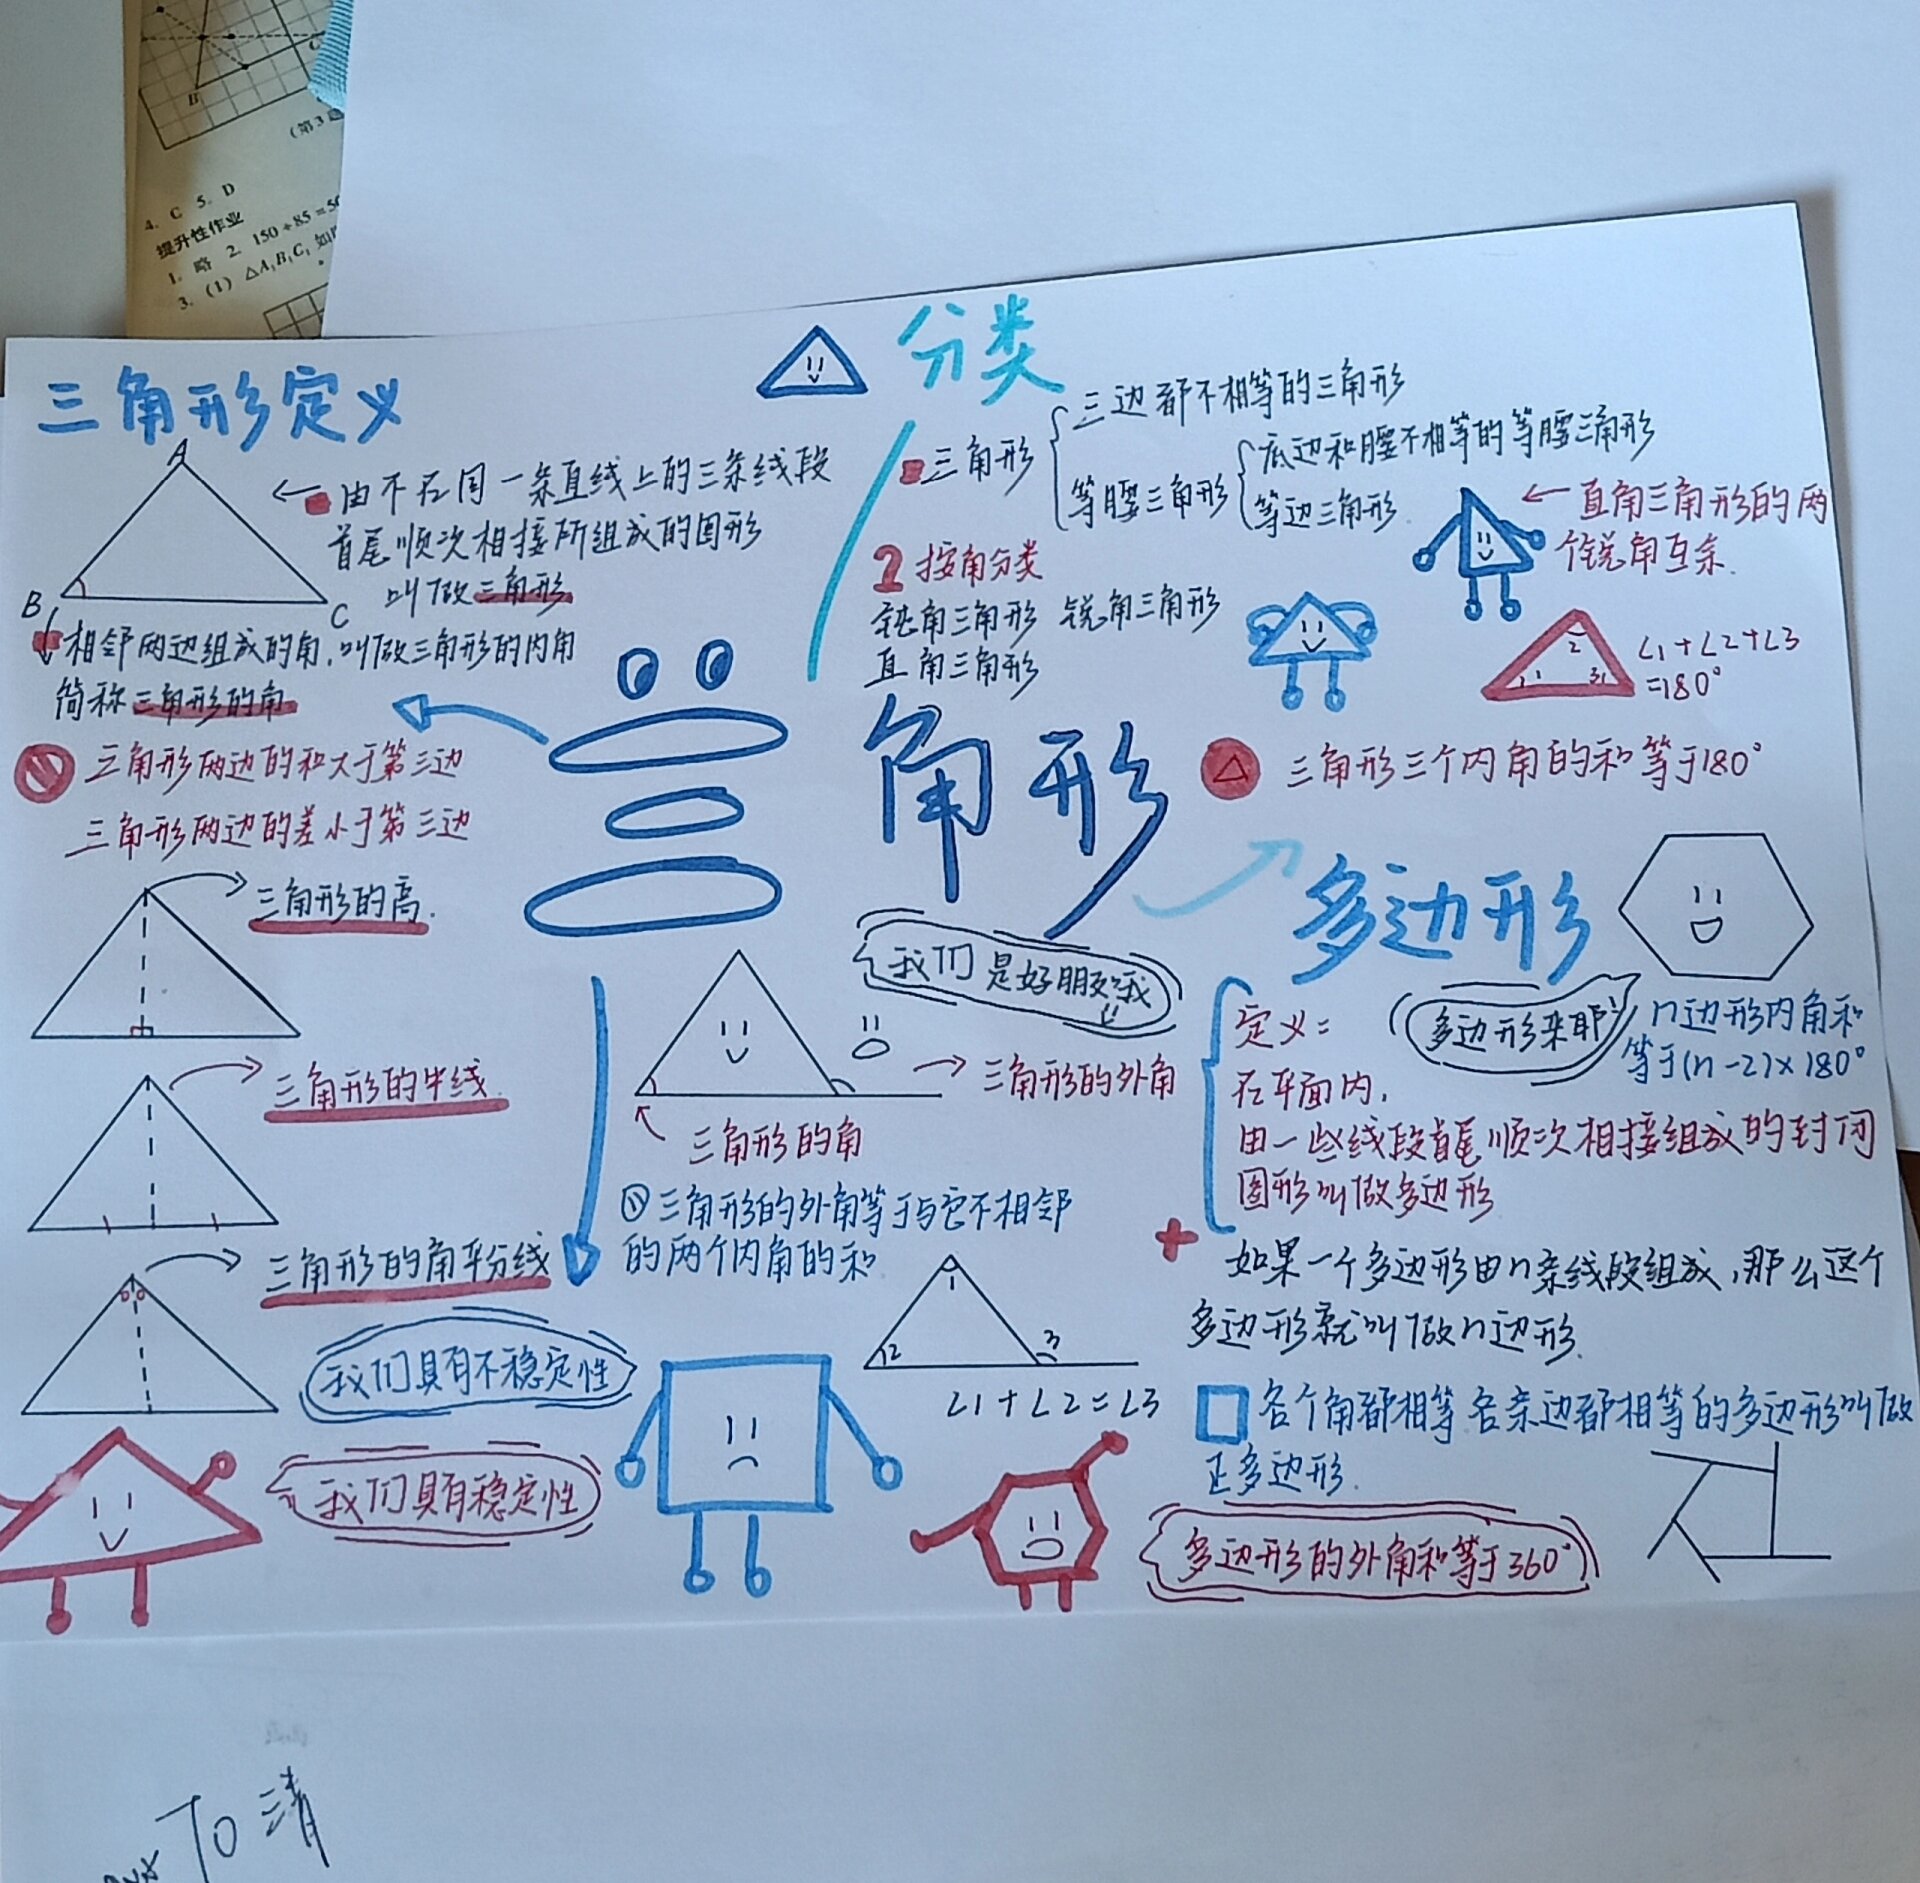 B
C
(第3题
4. C 5. D
提升性作业
1. 略 2. 150+85=50
3. (1) △A₁B₁C₁ 如
三角形定义
A
B
C
由不在同一条直线上的三条线段
首尾顺次相接所组成的图形
叫做三角形
相邻两边组成的角,叫做三角形的内角
简称三角形的角
三角形两边的和大于第三边
三角形两边的差小于第三边
三角形的高.
三角形的中线.
三角形的角平分线
我们具有不稳定性
我们具有稳定性
分类
三角形
三边都不相等的三角形
等腰三角形
底边和腰不相等的等腰三角形
等边三角形.
2 按角分类
钝角三角形 锐角三角形
直角三角形
直角三角形的两
个锐角互余.
2
1
3
∠1+∠2+∠3
=180°
三角形三个内角的和等于180°
三角形
我们是好朋友哦
三角形的外角
三角形的角
三角形的外角等于与它不相邻
的两个内角的和
1
2
3
∠1+∠2=∠3
多边形
多边形来耶
n边形内角和
等于(n-2)×180°
定义:
在平面内,
由一些线段首尾顺次相接组成的封闭
图形叫做多边形
如果一个多边形由n条线段组成,那么这个
多边形就叫做n边形.
各个角都相等各条边都相等的多边形叫做
正多边形.
多边形的外角和等于360°
To 清